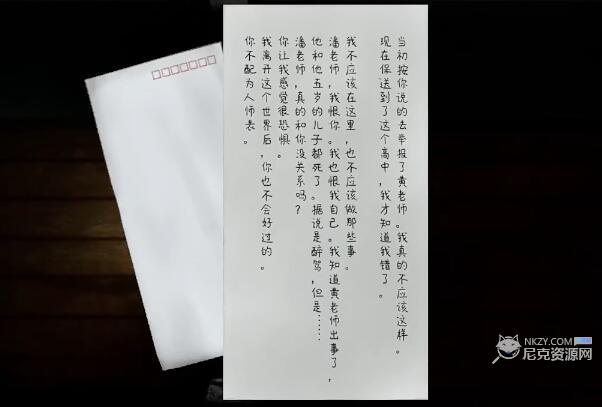 当初按你说的去举报了黄老师。我真的不应该这样。
现在保送到了这个高中，我才知道我错了。
我不应该在这里，也不应该做那些事。
潘老师，我恨你。我也恨我自己。我知道黄老师出事了，
他和他五岁的儿子都死了。据说是醉驾，但是……
潘老师，真的和你没关系吗？
你让我感觉很恐惧。
我离开这个世界后，你也不会好过的。
你不配为人师表。
NKZY.COM
尼克资源网